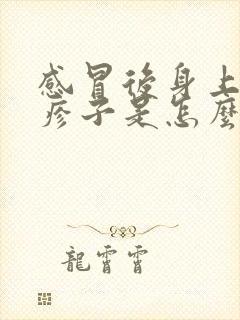 感冒後身上
疹子是怎麼
龍霄霄